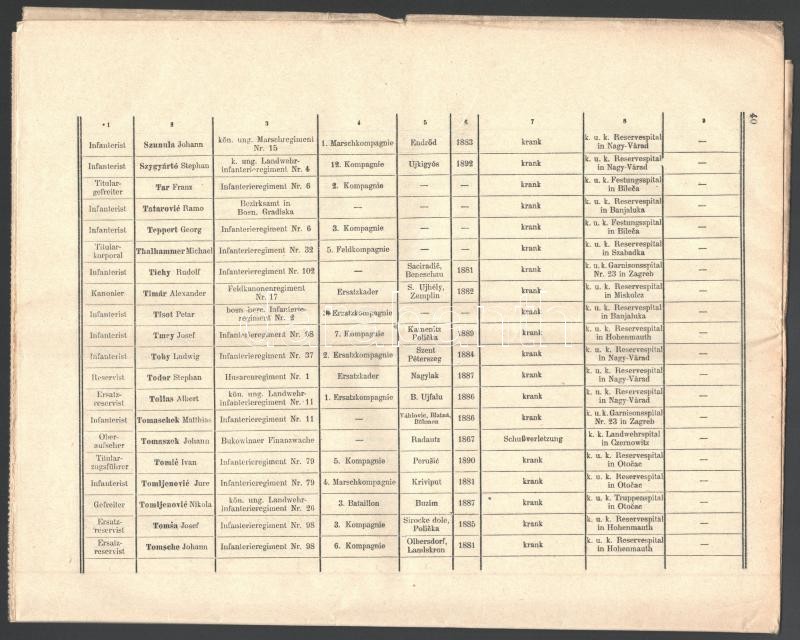 1 2 3 4 5 6 7 8 9
40
Infanterist Szunula Johann kön. ung. Marschregiment Nr. 15 1. Marschkompagnie Endröd 1883 krank k. u. k. Reservespital in Nagy-Várad —
Infanterist Szygyártó Stephan k. ung. Landwehr-infanterieregiment Nr. 4 12. Kompagnie Ujkigyós 1892 krank k. u. k. Reservespital in Nagy-Várad —
Titular-gefreiter Tar Franz Infanterieregiment Nr. 6 2. Kompagnie — — krank k. u. k. Festungsspital in Bileća —
Infanterist Tatarović Ramo Bezirksamt in Bosn. Gradiska — — — krank k. u. k. Reservespital in Banjaluka —
Infanterist Teppert Georg Infanterieregiment Nr. 6 3. Kompagnie — — krank k. u. k. Festungsspital in Bileća —
Titular-korporal Thalhammer Michael Infanterieregiment Nr. 32 5. Feldkompagnie — — krank k. u. k. Reservespital in Szabadka —
Infanterist Tichy Rudolf Infanterieregiment Nr. 102 — Saciradič, Beneschau 1881 krank k. u. k. Garnisonsspital Nr. 23 in Zagreb —
Kanonier Timár Alexander Feldkanonenregiment Nr. 17 Ersatzkader S. Ujhély, Zemplin 1882 krank k. u. k. Reservespital in Miskolcz —
Infanterist Tisot Petar bosn.-herc. Infanterie-regiment Nr. 2 Ersatzkompagnie — — krank k. u. k. Reservespital in Banjaluka —
Infanterist Tmey Josef Infanterieregiment Nr. 98 7. Kompagnie Kamenitz Polička 1889 krank k. u. k. Reservespital in Hohenmauth —
Infanterist Toby Ludwig Infanterieregiment Nr. 37 2. Ersatzkompagnie Szent Péterszeg 1884 krank k. u. k. Reservespital in Nagy-Várad —
Reservist Todor Stephan Husarenregiment Nr. 1 Ersatzkader Nagylak 1887 krank k. u. k. Reservespital in Nagy-Várad —
Ersatz-reservist Tollas Albert kön. ung. Landwehr-infanterieregiment Nr. 11 1. Ersatzkompagnie B. Ujfalu 1886 krank k. u. k. Reservespital in Nagy-Várad —
Infanterist Tomaschek Matthias Infanterieregiment Nr. 11 — Váhlovic, Blatná, Böhmen 1886 krank k. u. k. Garnisonsspital Nr. 23 in Zagreb —
Ober-aufseher Tomaszek Johann Bukowinaer Finanzwache — Radautz 1867 Schußverletzung k. k. Landwehrspital in Czernowitz —
Titular-zugsführer Tomić Ivan Infanterieregiment Nr. 79 5. Kompagnie Perušić 1890 krank k. u. k. Reservespital in Otočac —
Infanterist Tomljenović Jure Infanterieregiment Nr. 79 4. Marschkompagnie Kriviput 1881 krank k. u. k. Reservespital in Otočac —
Gefreiter Tomljenović Nikola kön. ung. Landwehr-infanterieregiment Nr. 26 3. Bataillon Buzim 1887 krank k. u. k. Truppenspital in Otočac —
Ersatz-reservist Tomša Josef Infanterieregiment Nr. 98 3. Kompagnie Sirocke dole, Polička 1885 krank k. u. k. Reservespital in Hohenmauth —
Ersatz-reservist Tomsche Johann Infanterieregiment Nr. 98 6. Kompagnie Olbersdorf, Landskron 1881 krank k. u. k. Reservespital in Hohenmauth —